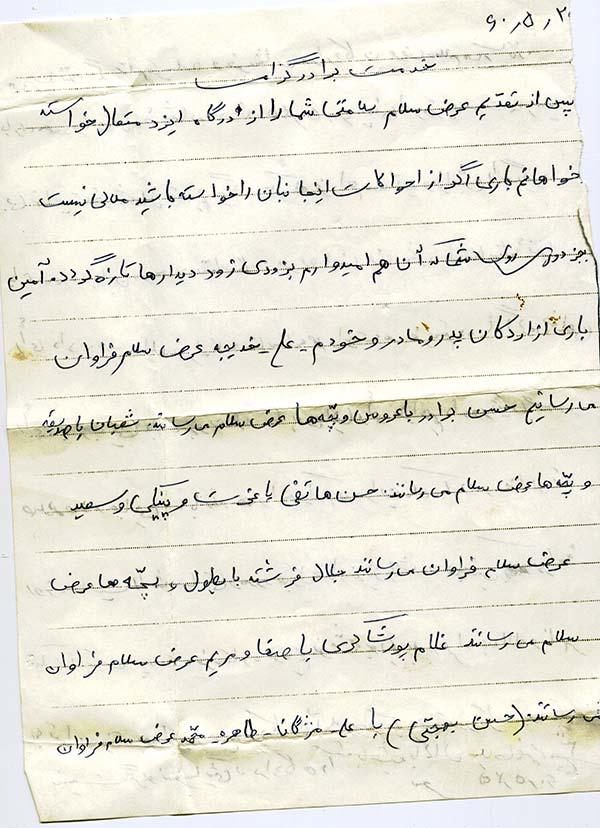 ۶۰٫۵٫۲
خدمت برادر گرامی
پس از تقدیم عرض سلام سلامتی شما را از درگاه ایزد متعال خواسته
خواهانم باری اگر از احوالات اینجانبان را خواسته باشید ملالی نیست
بجز دوری روی شما که آن هم امیدوارم بزودی زود دیدارها تازه گردد. آمین
باری از اردکان پدر و مادر و خودم - علی - خدیجه عرض سلام فراوان
می رسانیم حسن برادر با عروس و بچه ها عرض سلام می رسانند. شعبان با صدیقه
و بچه ها عرض سلام می رسانند. حسن هاتفی با عفت و پینکی و سعید
عرض سلام فراوان می رسانند جلال فرشته با بطول و بچه ها عرض
سلام می رسانند غلام پورشاکری با صفا و مریم عرض سلام فراوان
می رسانند. (حسن بهجتی) با علی - مژگان - طاهره - محمد عرض سلام فراوان